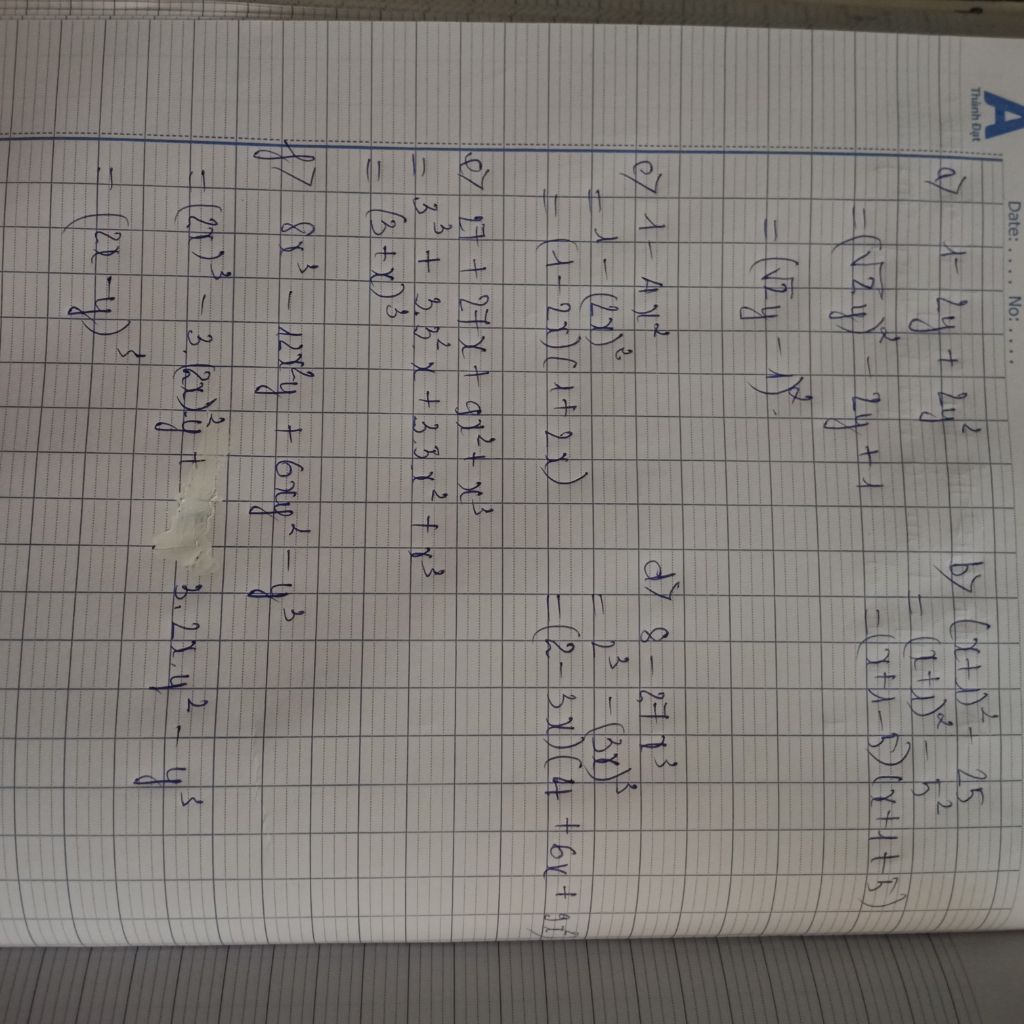 A
Thành Đạt
Date: ..... No: .....
a) 1 - 2y + 2y²
= (√2y)² - 2y + 1
= (√2y - 1)².
b) (x+1)² - 25
= (x+1)² - 5²
= (x+1-5)(x+1+5)
c) 1 - 4x²
= 1 - (2x)²
= (1 - 2x)(1 + 2x)
d) 8 - 27x³
= 2³ - (3x)³
= (2 - 3x)(4 + 6x +
e) 27 + 27x + 9x² + x³
= 3³ + 3.3²x + 3.3x² + x³
= (3 + x)³
f) 8x³ - 12x²y + 6xy² - y³
= (2x)³ - 3.(2x)²y + 3.2x.y² - y³
= (2x - y)³